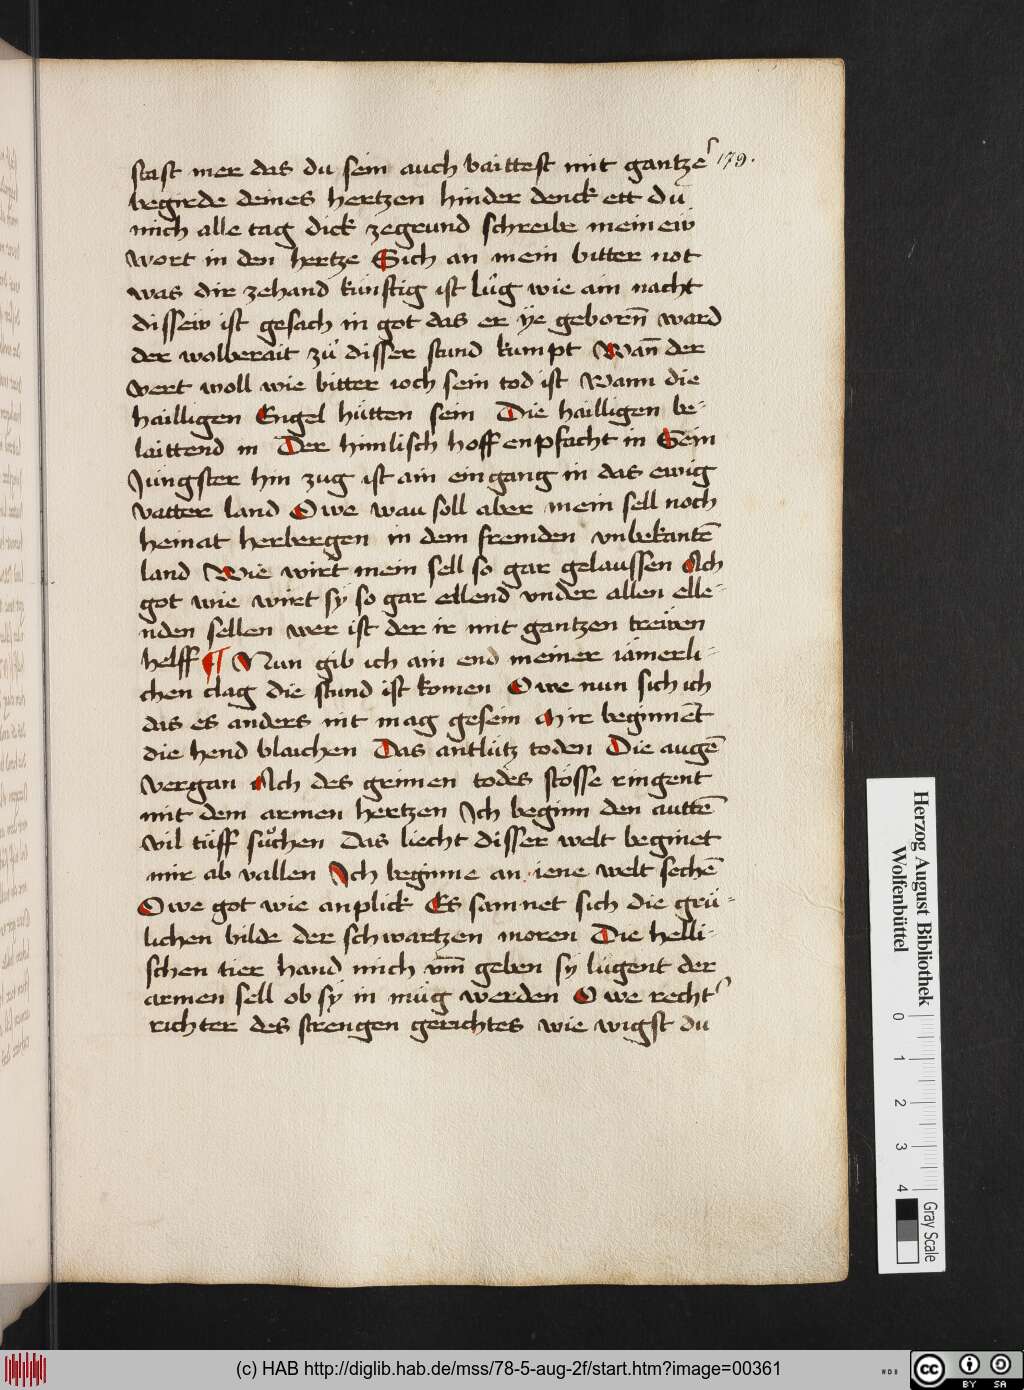 stast mer das du sein auch baittest mit gantzer 179.
begirde deines hertzen hinder denck ett du
mich alle tag dick zegrund schreibe mein eiv
wort in den hertze Sich an mein bitter not
was dir zehand künftig ist lůg wie ain nacht
disseiv ist gesach in got das er ÿe geborn̄ ward
der wolberait zů disser stund kumpt Wan̄ der
wert woll wie bitter ioch sein tod ist Wann die
hailligen Engel hütten sein Die hailligen be-
laittend in Der himlisch hoff enpfacht in Sein
Jungster hin zug ist ain eingang in das ewig
vatter land Owe wau soll aber mein sell noch
heinat herbergen in dem fremden vnbekantē
land Wie wirt mein sell so gar gelaussen Ach
got wie wirt sy so gar ellend vnder allen elle-
nden sellen wer ist der ir mit gantzen treẅen
helff ¶ Nun gib ich ain end meiner iämerli-
chen clag die stund ist komen Owe nun sich ich
das es anders nit mag gesein Mir beginnēt
die hend blaichen Das antlütz toden Die augē
vergan Ach des grinen todes stösse ringent
mit dem armen hertzen Ich beginn den auttē
vil tüff sůchen Das liecht disser welt beginet
mir ab vallen Ich beginne an iene welt sechē
Owe got wie anplick Es samnet sich die grü-
lichen bilde der schwartzen moren Die helli-
schen tier hand mich vm̄ geben sy lůgent der
armen sell ob sy in müg werden Owe recht
richter des strengen gerichtes wie wigst du
Herzog August Bibliothek
Wolfenbüttel
0 1 2 3 4
Gray Scale
(c) HAB http://diglib.hab.de/mss/78-5-aug-2f/start.htm?image=00361
WDB
CC BY SA